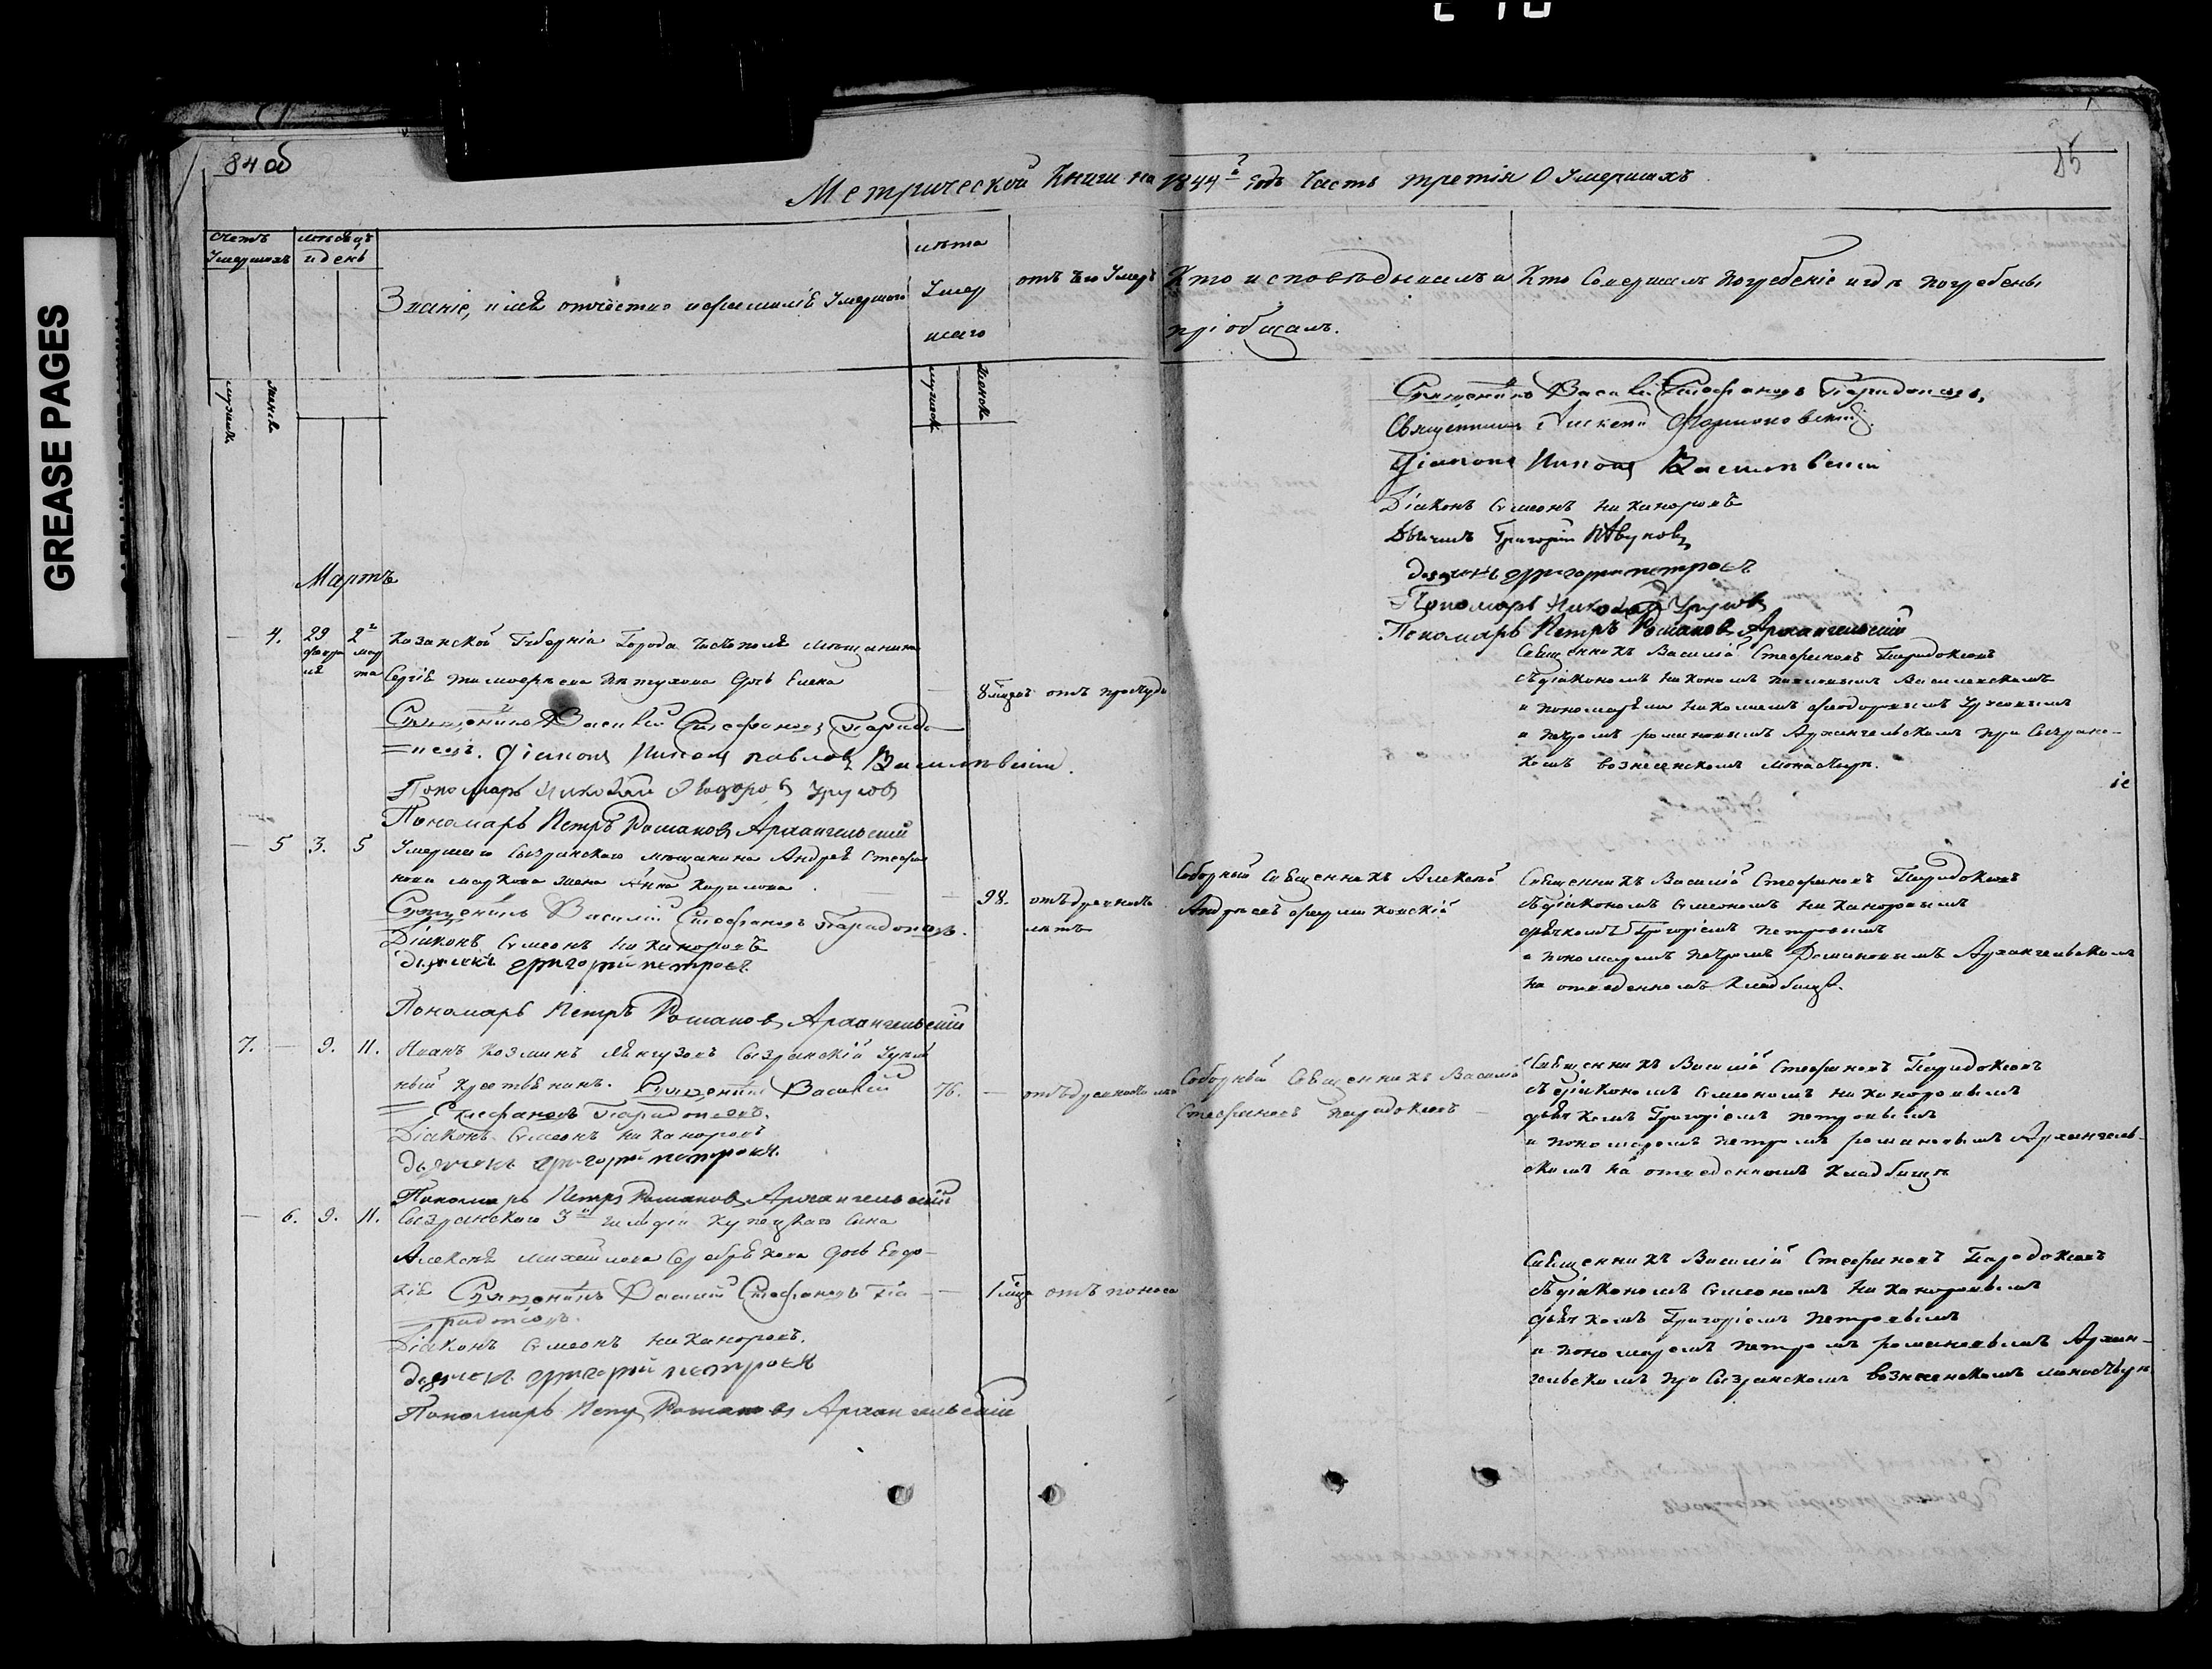 GREASE PAGES
84 об
85
Метрической Книги на 1844й годъ Часть третія О Умершихъ
Счетъ Умершихъ
месяцъ и день
Званіе, имя отчество и фамиліе Умершаго
лѣта Умершаго
отъ чего Умеръ
Кто исповѣдывалъ и пріобщалъ.
Кто Совершалъ погребеніе и гдѣ погребены
мужеска
женска
мужеска
женска
Священникъ Василій Стефановъ Парадоксовъ,
Священникъ Алексей
Діаконъ Никонъ Василевскій
Діаконъ Симеонъ Никаноровъ
Дьячекъ Григорій
Дьячекъ Григорій Петровъ
Пономарь Николай
Пономарь Петръ Романовъ Архангельскій
Мартъ
4. 29 февраля 2го марта
Казанской Губерніи Города Чистополя мещанина
Сергія Тимофеева Петухова дочь Елена
8 месяц. отъ простуды
Священникъ Василій Стефановъ Парадоксовъ
съ діакономъ Никономъ Павловымъ Василевскимъ
и пономарями Николаемъ Феодоровымъ
и Петромъ Романовымъ Архангельскимъ при Сызранскомъ Вознесенскомъ монастыре.
Священникъ Василій Стефановъ Парадо-
=ксовъ. Діаконъ Никонъ Павловъ Василевскій.
Пономарь Николай Феодоровъ
Пономарь Петръ Романовъ Архангельскій
5 3. 5
Умершаго Сызранскаго мещанина Андрея Стефанова Маркова жена Анна Карпова
98. отъ древности летъ
Соборный Священникъ Алексей
Андреевъ
Священникъ Василій Стефановъ Парадоксовъ
съ діакономъ Симеономъ Никаноровымъ
дьячкомъ Григоріемъ Петровымъ
и пономаремъ Петромъ Романовымъ Архангельскимъ
на отведенномъ Кладбище.
Священникъ Василій Стефановъ Парадоксовъ.
Діаконъ Симеонъ Никаноровъ
Дьячекъ Григорій Петровъ
Пономарь Петръ Романовъ Архангельскій
7. 9. 11.
Иванъ Козминъ Сызранскій
крестьянинъ. Священникъ Василій
Стефановъ Парадоксовъ.
76. отъ древности летъ
Соборный Священникъ Василій
Стефановъ Парадоксовъ
Священникъ Василій Стефановъ Парадоксовъ
съ діакономъ Симеономъ Никаноровымъ
дьячкомъ Григоріемъ Петровымъ
и пономаремъ Петромъ Романовымъ Архангель-
скимъ на отведенномъ Кладбище
Діаконъ Симеонъ Никаноровъ
Дьячекъ Григорій Петровъ.
Пономарь Петръ Романовъ Архангельскій
6. 9. 11.
Сызранскаго 3й гильдіи купецкаго сына
Алексея Михайлова Серебрякова дочь Евдо-
кія Священникъ Василій Стефановъ Па-
=радоксовъ.
1 месяц отъ поноса
Священникъ Василій Стефановъ Парадоксовъ
съ діакономъ Симеономъ Никаноровымъ
дьячкомъ Григоріемъ Петровымъ
и пономаремъ Петромъ Романовымъ Архан-
гельскимъ при Сызранскомъ Вознесенскомъ монастыре
Діаконъ Симеонъ Никаноровъ.
Дьячекъ Григорій Петровъ
Пономарь Петръ Романовъ Архангельскій